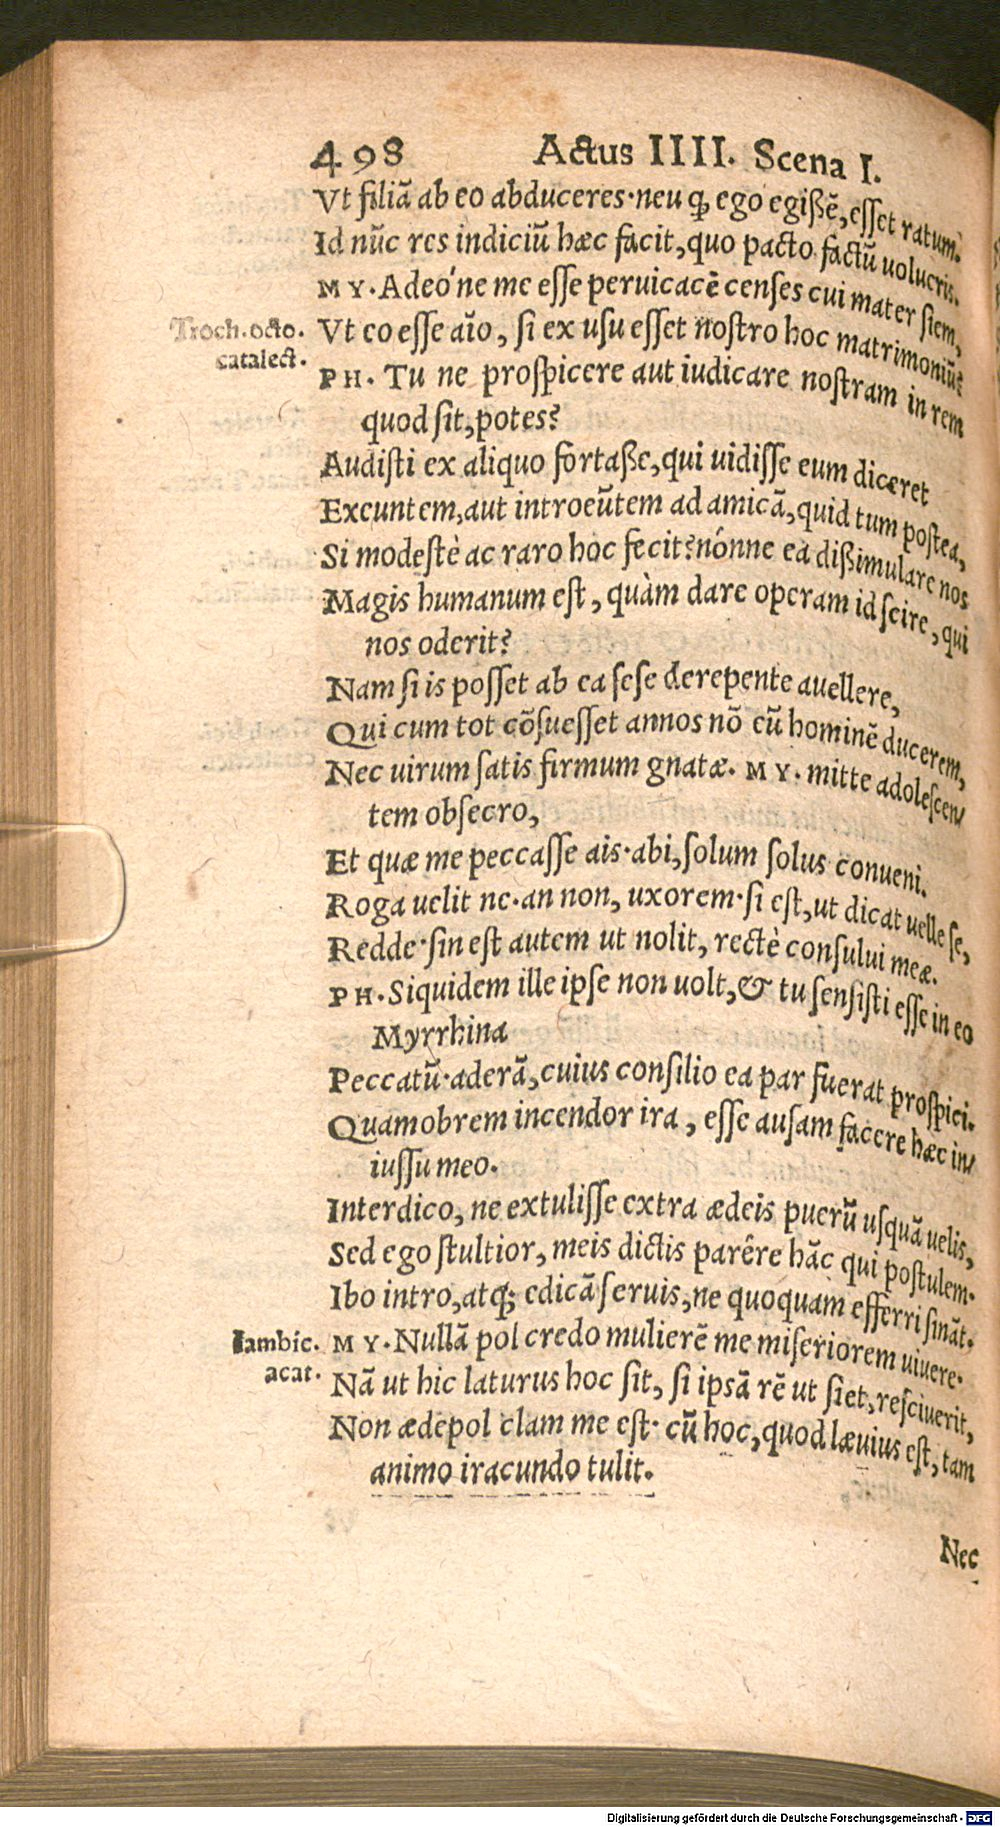 498 Actus IIII. Scena I.
Vt filiā ab eo abduceres·neu q̃ ego egißē, esset ratum.
Id nūc res indiciū hæc facit, quo pacto factū uolueris.
MY. Adeo'ne me esse peruicacē censes cui mater siem,
Troch. octo. Vt eo esse aīo, si ex usu esset nostro hoc matrimoniū?
catalect. PH. Tu ne prospicere aut iudicare nostram in rem
quod sit, potes?
Audisti ex aliquo fortaße, qui uidisse eum diceret
Exeuntem, aut introeūtem ad amicā, quid tum postea,
Si modestè ac raro hoc fecit? nónne ea dißimulare nos
Magis humanum est, quàm dare operam id scire, qui
nos oderit?
Nam si is posset ab ea sese derepente auellere,
Qui cum tot cōsuesset annos nō eū hominē ducerem,
Nec uirum satis firmum gnatæ. MY. mitte adolescen/
tem obsecro,
Et quæ me peccasse ais·abi, solum solus conueni.
Roga uelit ne·an non, uxorem·si est, ut dicat uelle se,
Redde·sin est autem ut nolit, rectè consului meæ.
PH. Siquidem ille ipse non uolt, & tu sensisti esse in eo
Myrrhina
Peccatū·aderā, cuius consilio ea par fuerat prospici.
Quamobrem incendor ira, esse ausam facere hæc in/
iussu meo.
Interdico, ne extulisse extra ædeis puerū usquā uelis,
Sed ego stultior, meis dictis parêre hāc qui postulem·
Ibo intro, atq; edicā seruis, ne quoquam efferri sināt.
Iambic. MY. Nullā pol credo mulierē me miseriorem uiuere·
acat. Nā ut hic laturus hoc sit, si ipsā rē ut siet, resciuerit,
Non ædepol clam me est· cū hoc, quod læuius est, tam
animo iracundo tulit.
Nec
Digitalisierung gefördert durch die Deutsche Forschungsgemeinschaft - DFG